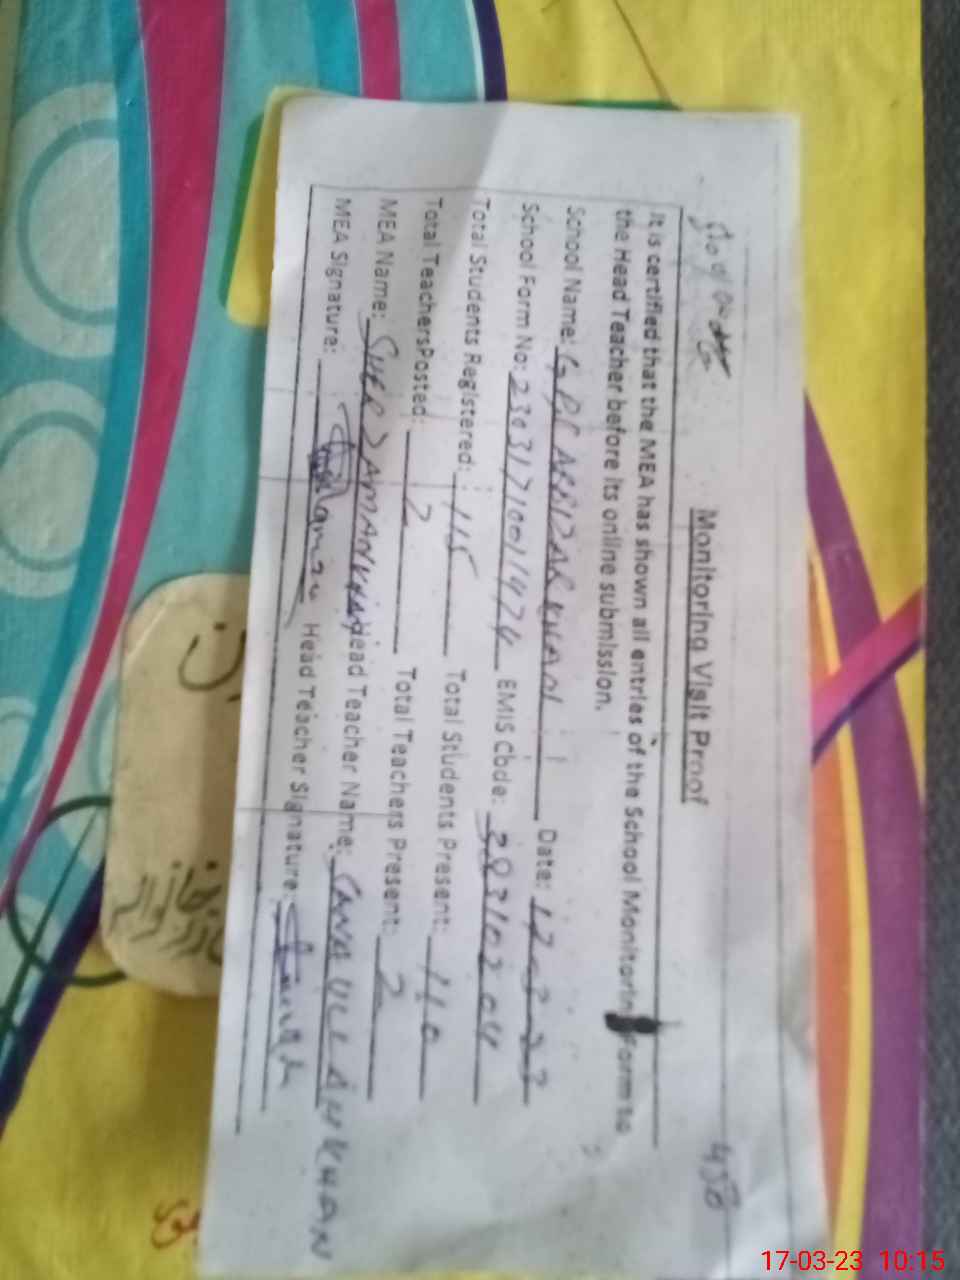 Monitoring Visit Proof
458
It is certified that the MEA has shown all entries of the School Monitoring Form to
the Head Teacher before its online submission.
School Name: KHAN Date: 17-3-23
School Form No: 2303171001474 EMIS Code: 38310204
Total Students Registered: 115 Total Students Present: 110
Total Teachers Posted: 2 Total Teachers Present: 2
MEA Name: SHER ZAMAN KHAN Head Teacher Name: SANA ULLAH KHAN
MEA Signature: Head Teacher Signature:
17-03-23 10:15